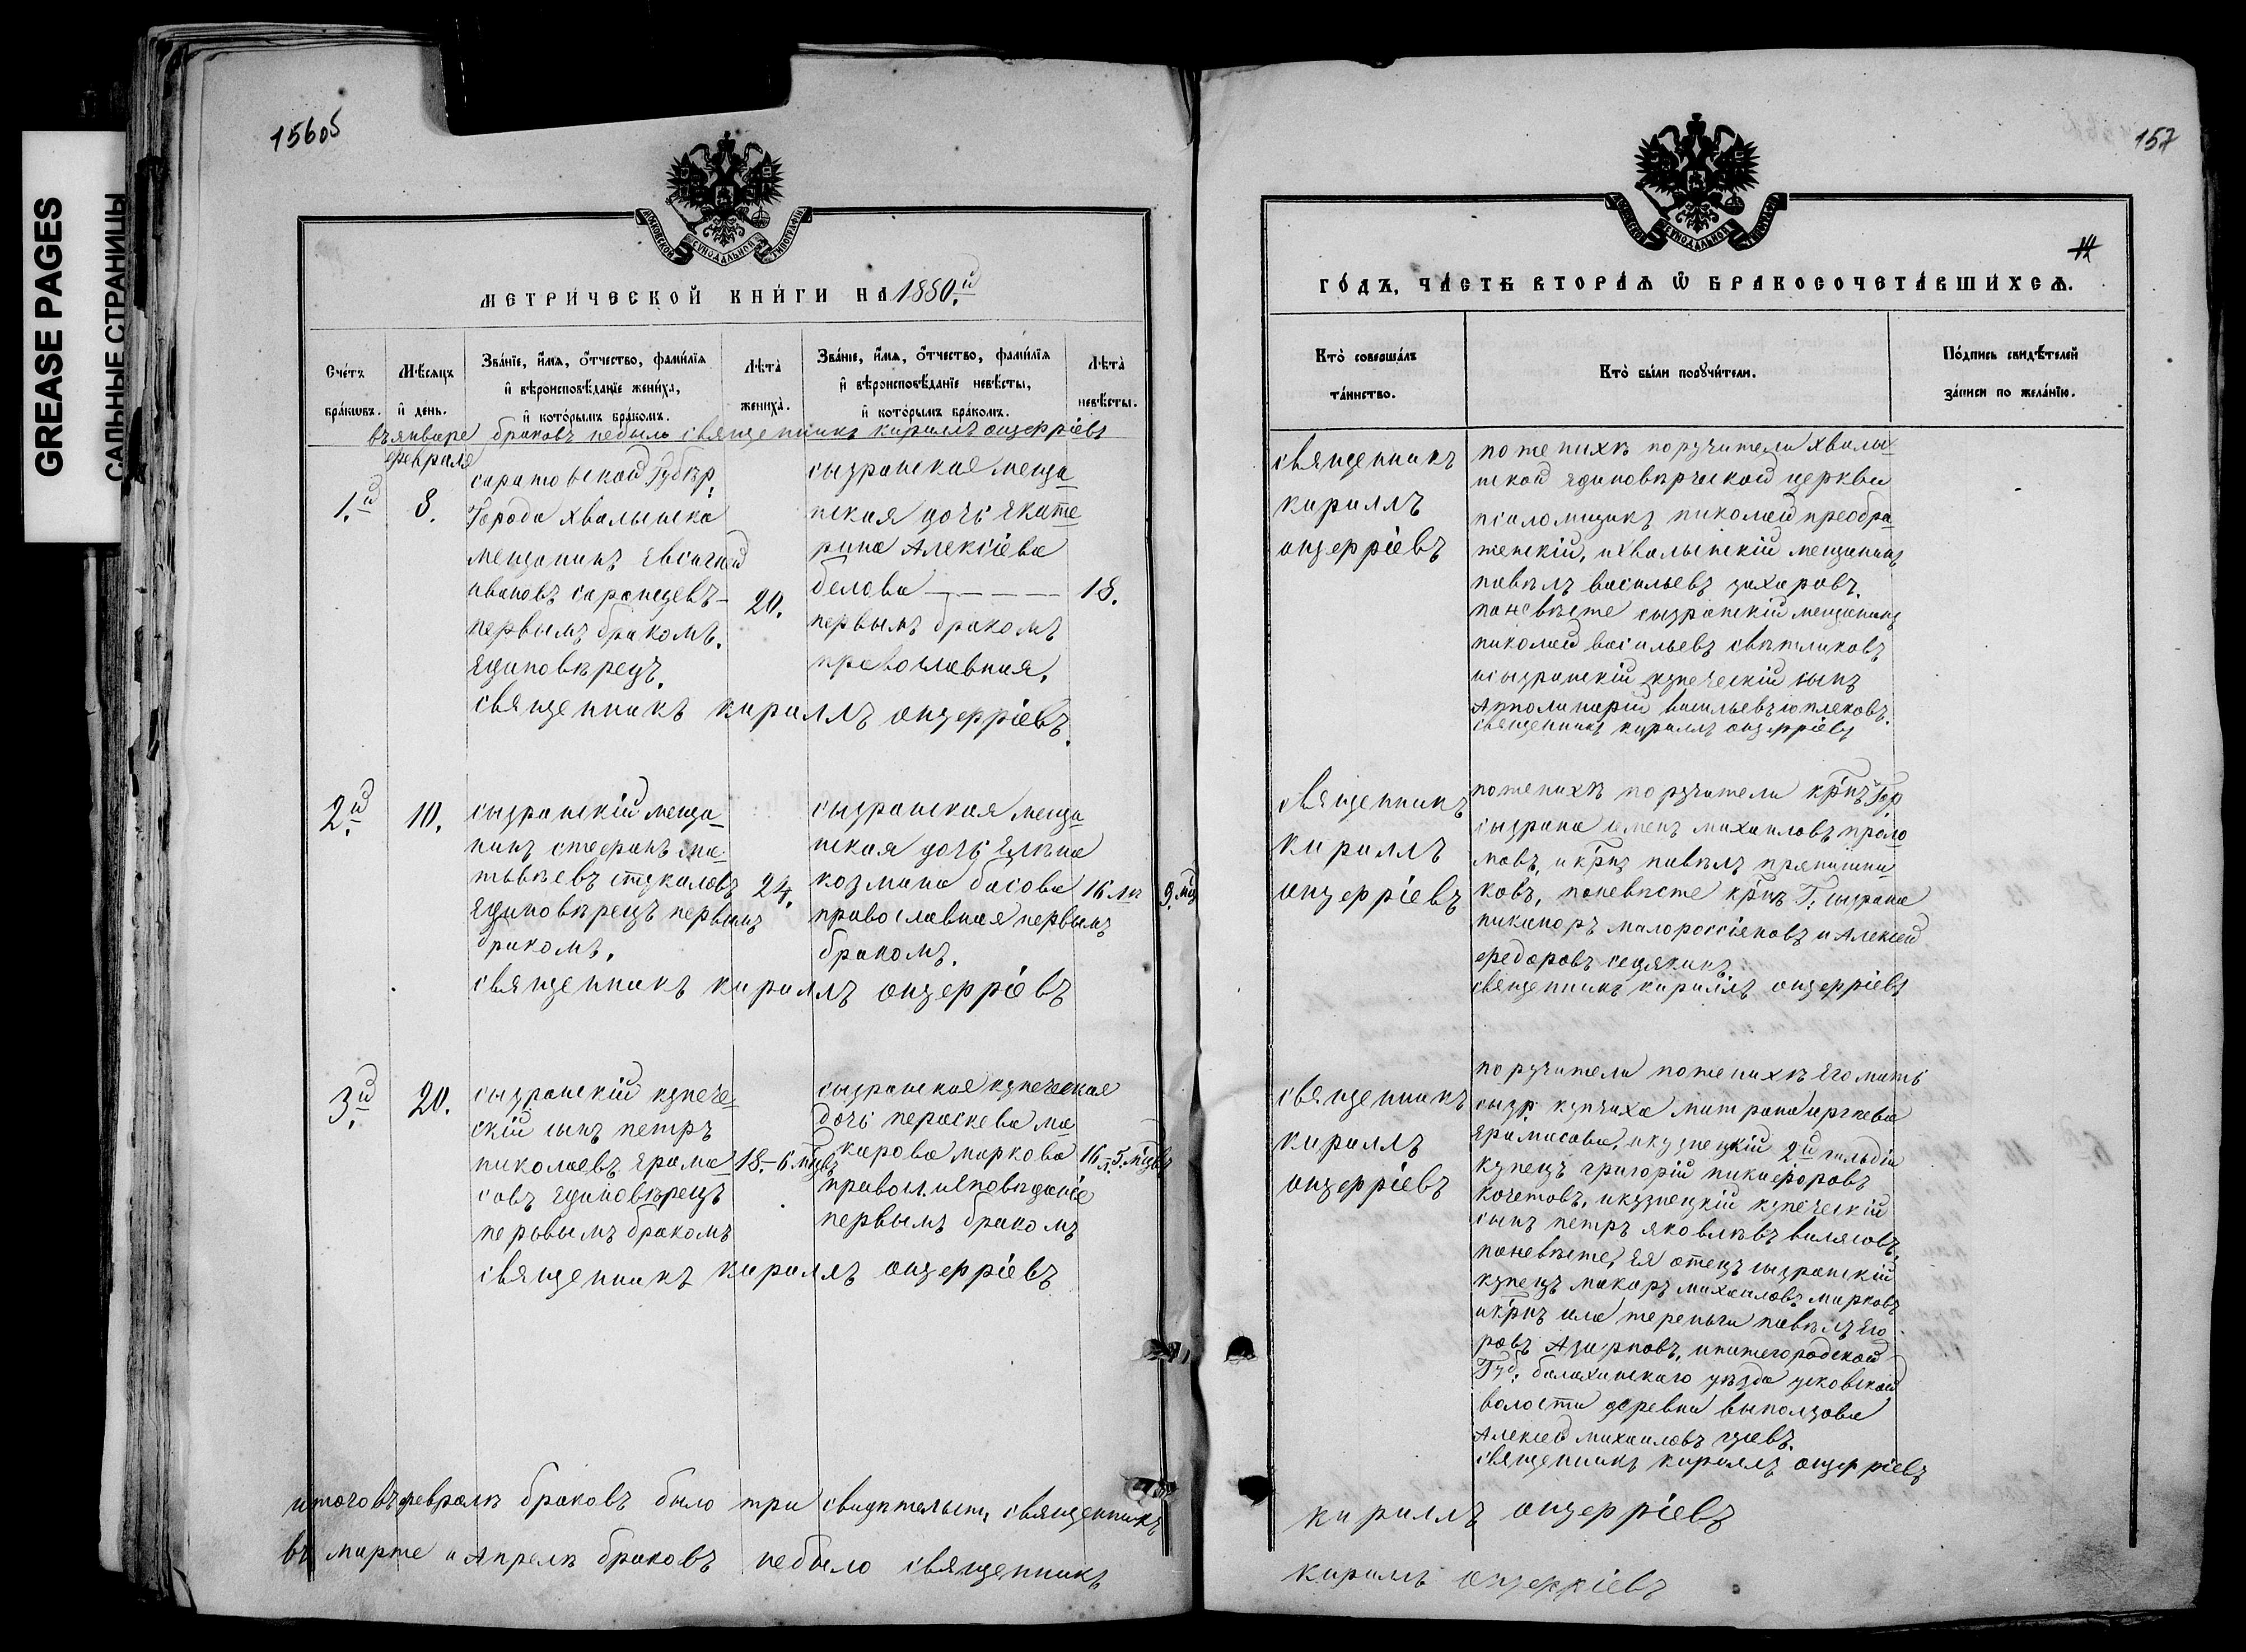 GREASE PAGES
САЛЬНЫЕ СТРАНИЦЫ
156об
МОСКОВСКОЙ СѴНОДАЛЬНОЙ ТИПОГРАФІИ
МЕТРИЧЕСКОЙ КНИГИ НА 1880.й
Счетъ браковъ.
Мѣсяцъ и день.
Званіе, имя, отчество, фамилія
и вѣроисповѣданіе жениха,
и которымъ бракомъ.
Лѣта
жениха.
Званіе, имя, отчество, фамилія
и вѣроисповѣданіе невѣсты,
и которымъ бракомъ.
Лѣта
невѣсты.
въ январе браковъ небыло священникъ кириллъ
февраля
1.й
8.
саратовской Губѣр:
Города хвалынска
мещанинъ Евсигней
ивановъ саранцевъ
первымъ бракомъ.
Единовѣрецъ.
20.
сызранская меща
нская дочь Екате
рина Алексіева
белова
первымъ бракомъ
православная.
18.
священникъ кириллъ
2.й
10.
сызранскій меща
нинъ стефанъ ма
твѣевъ стукаловъ
Единовѣрецъ первымъ
бракомъ.
24.
сызранская меща
нская дочь Елѣна
козмина басова
православная первымъ
бракомъ.
16 лѣ 9. мц
священникъ кириллъ
3.й
20.
сызранскій купече
скій сынъ петръ
николаевъ Ерама
совъ Единовѣрецъ
первымъ бракомъ
18.-6 мцвъ
сызранская купеческая
дочь пераскева ма
карова маркова
правосл. исповѣданіе
первымъ бракомъ
16 л. 5. мцвъ
священникъ кириллъ
итого въ феврале браковъ было три священникъ
въ марте и Апреле браковъ небыло священникъ
157
14
МОСКОВСКОЙ СѴНОДАЛЬНОЙ ТИПОГРАФІИ
ГОДЪ, ЧАСТЬ ВТОРАЯ Ѿ БРАКОСОЧЕТАВШИХСЯ.
Кто совершалъ
таинство.
Кто были поручители.
Подпись свидѣтелей
записи по желанію.
священникъ
кириллъ
по женихѣ поручители хвалы
нской Единовѣрческой церкви
псаломщикъ николай преобра
женскій, и хвалынскій мещанинъ
павелъ васильевъ захаровъ.
по невѣсте сызранскій мещанинъ
николай васильевъ свѣтликовъ
и сызранскій купеческій сынъ
Апполинарій васильевъ
священникъ кириллъ
священникъ
кириллъ
по женихѣ поручители крнъ Гор
сызрана семенъ михаиловъ
и крнъ павелъ прянишни
ковъ, по невѣсте крнъ Г: сызрана
никаноръ малороссіяновъ и Алексей
федоровъ седякинъ
священникъ кириллъ
священникъ
кириллъ
поручители по женихѣ Его мать
сызр. купчиха
Ерамасова, и кузнецкій 2й гильдіи
купецъ григорій никифоровъ
кочетовъ, и кузнецкій купеческій
сынъ петръ яковлевъ
по невѣсте, Ея отецъ сызранскій
купецъ макаръ михаиловъ марковъ
и крнъ села тереньги павелъ Его
ровъ и нижегородской
Губ: балахинскаго уѣзда
волости деревни выползова
Алексей михаиловъ
священникъ кириллъ
кириллъ
кириллъ